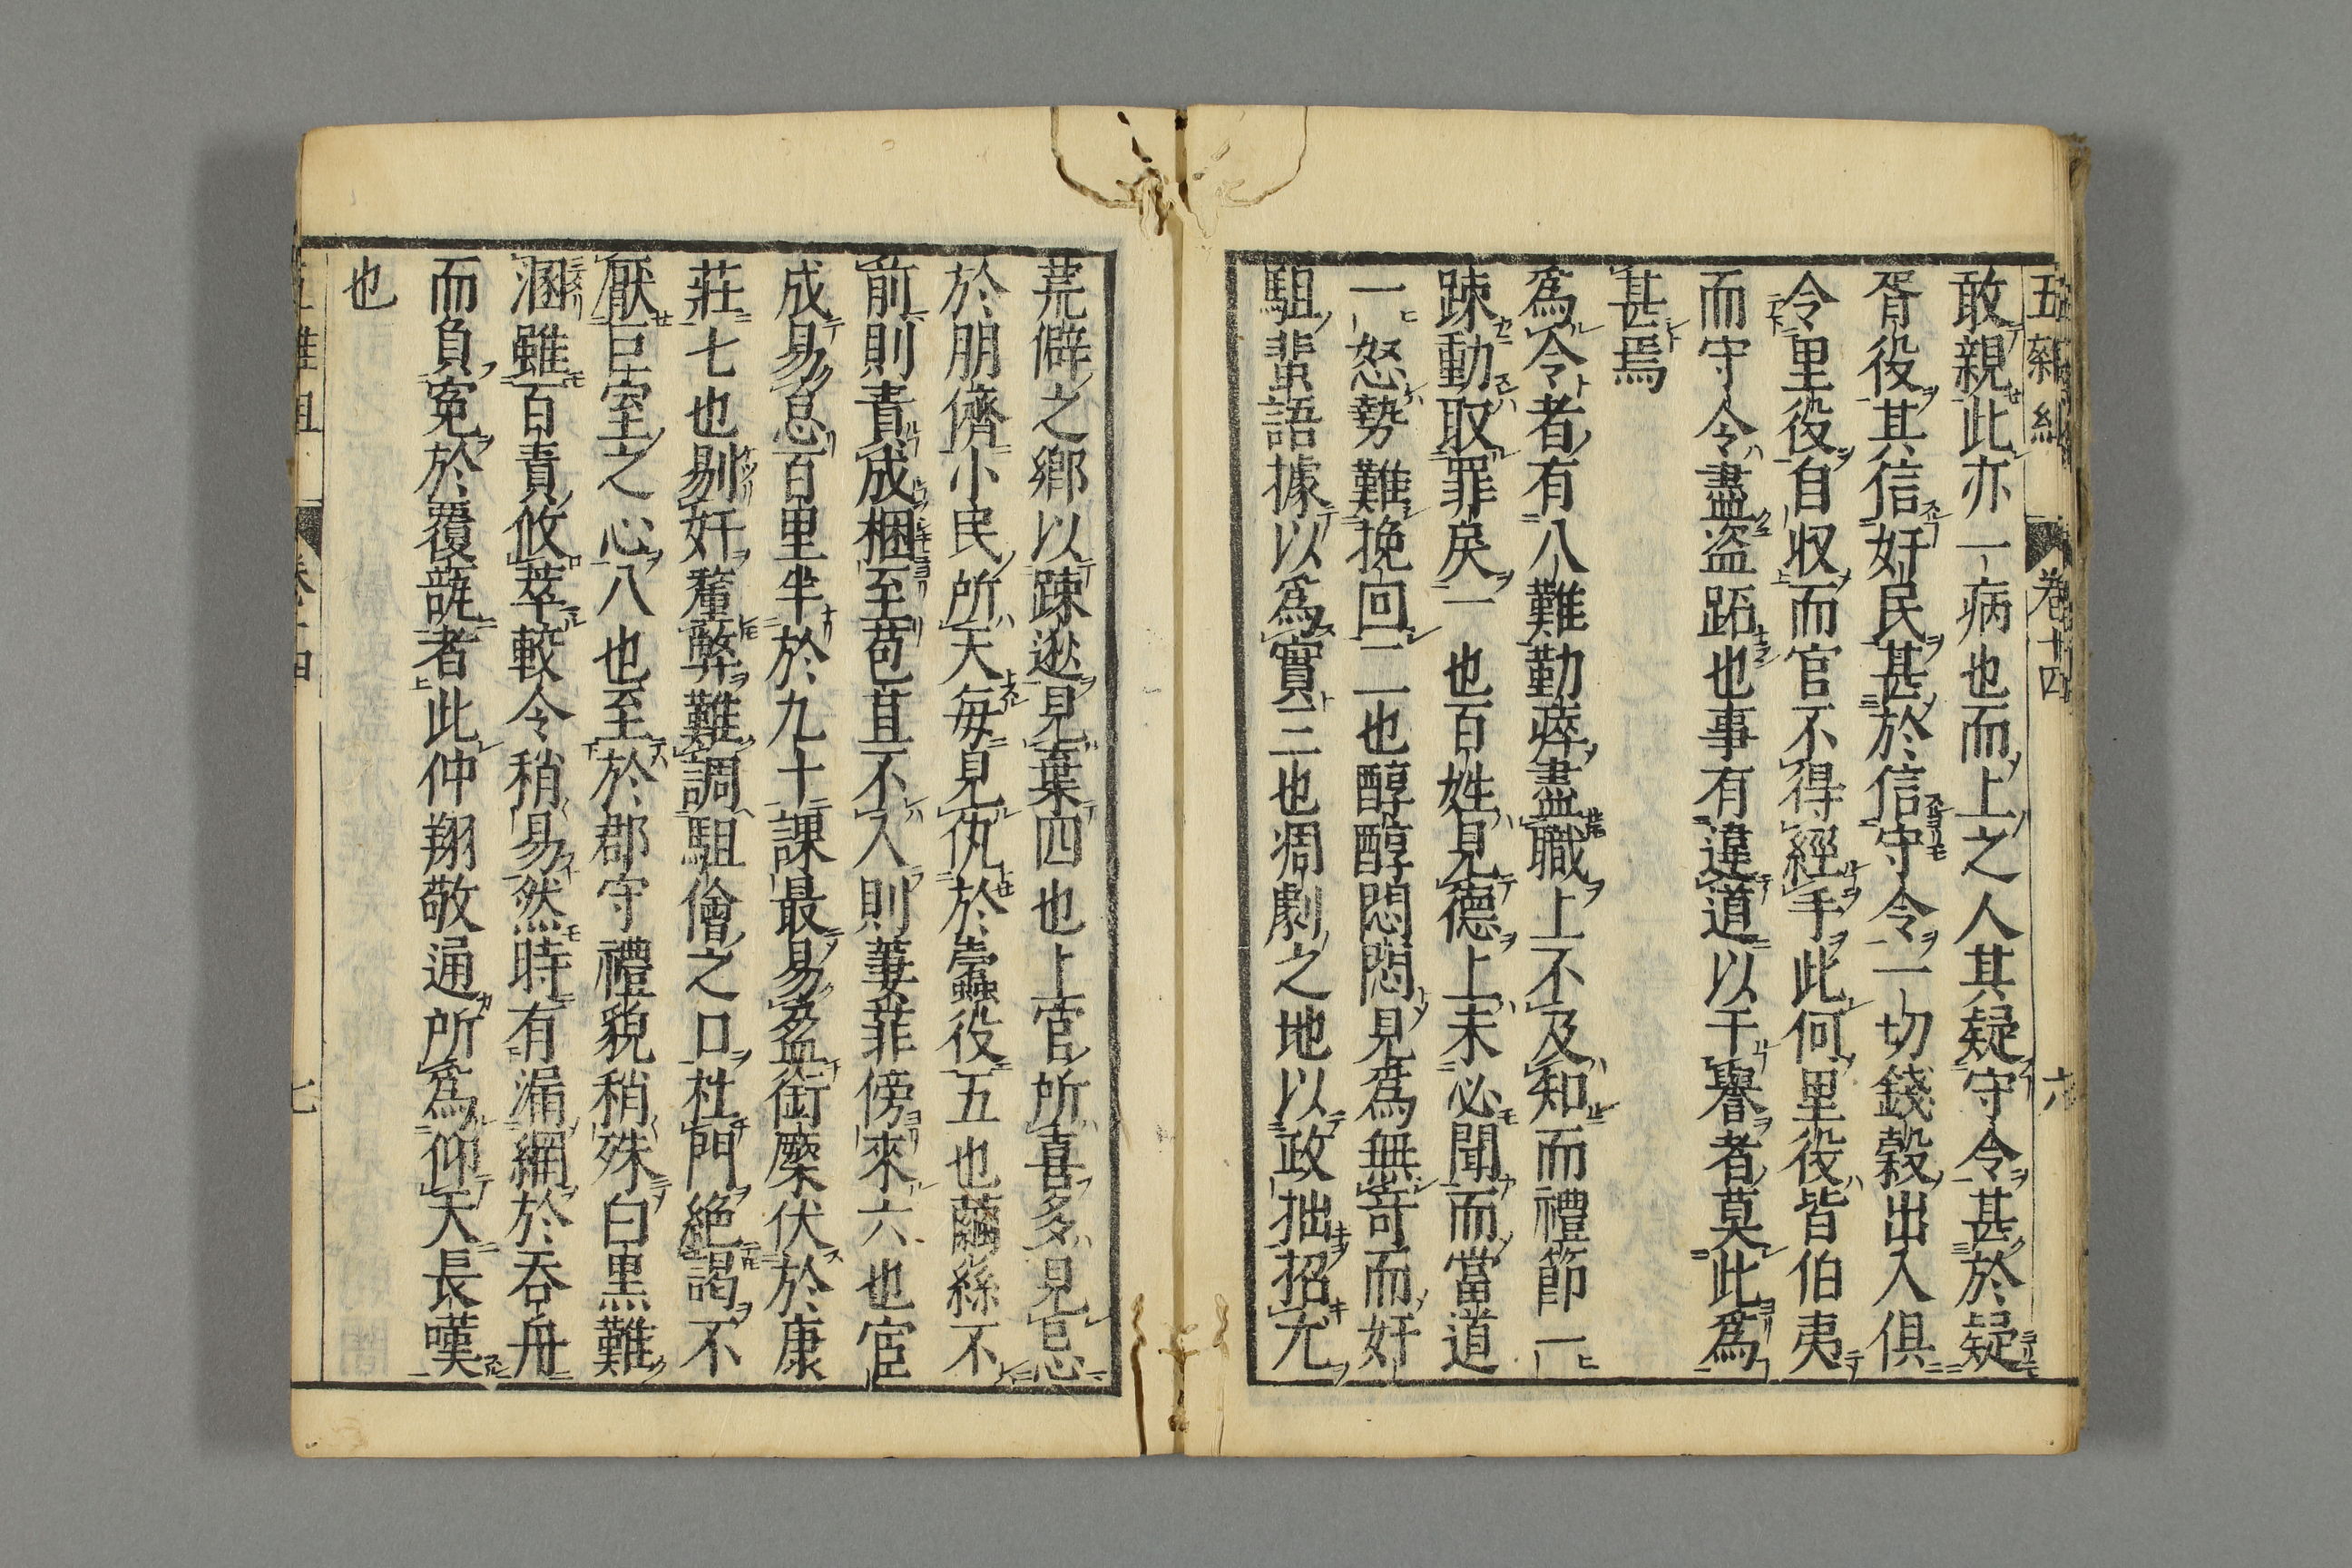 五雜組 卷十四 六
敢親此亦一病也而上之人其疑守令甚於疑
胥役其信奸民甚於信守令一切錢穀出入俱
令里役自収而官不得經手此何里役皆伯夷
而守令盡盗跖也事有違道以干譽者莫此爲
甚焉
爲令者有八難勤瘁盡職上不及知而禮節一
踈動取罪戾一也百姓見德上未必聞而當道
一怒勢難挽回二也醇醇悶悶見爲無奇而奸
駔蜚語據以爲實三也凋劇之地以政拙招尤
荒僻之鄉以踈逖見棄四也上官所喜多見忌
於朋儕小民所天每見仇於蠧役五也繭絲不
前則責成捆至苞苴不入則萋菲傍來六也宦
成易怠百里半於九十課最易盈銜橜伏於康
莊七也剔奸釐弊難調駔儈之口杜門絶謁不
厭巨室之心八也至於郡守禮貌稍殊白黒難
溷雖百責攸萃較令稍易然時有漏網於呑舟
而負寃於覆𧩬者此仲翔敬通所爲仰天長嘆
也
卷十四 七